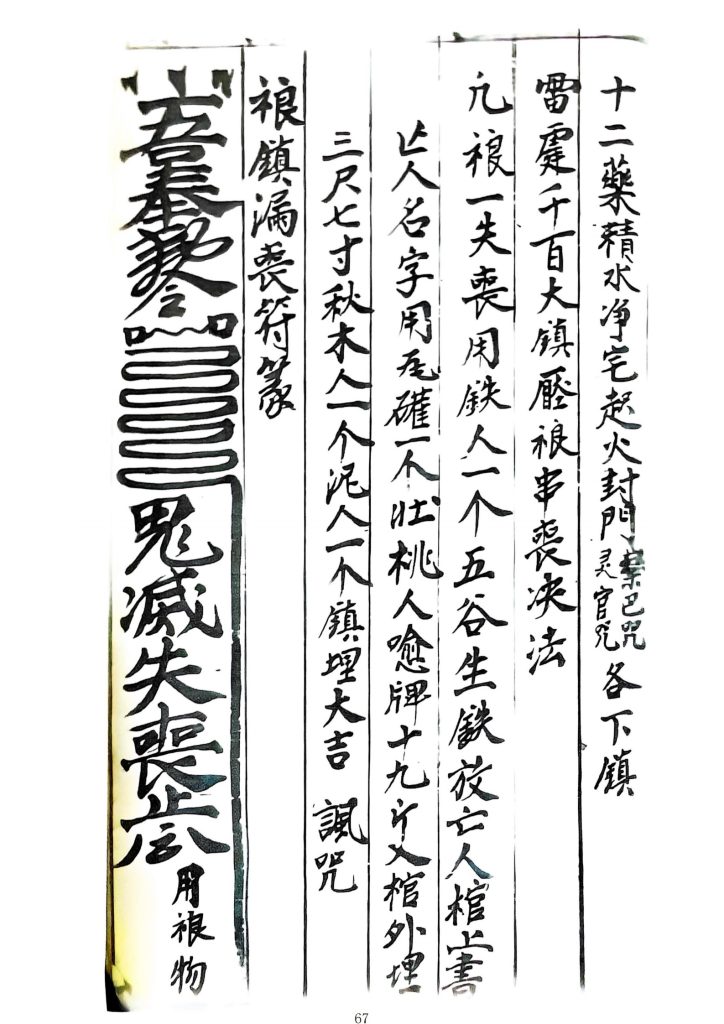 十二藥精水净宅起火封門
灵官咒 各下鎮
雷霆千百大鎮壓䘪串喪决法
凡䘪一失喪用鉄人一个五谷生鉄放亡人棺上書
亡人名字用瓦礶一个壯桃人 牌十九 入棺外埋
三尺七寸秋木人一个泥人一个鎮埋大吉 諷咒
䘪鎮漏喪符篆
吾奉 令 鬼滅失喪
用䘪物
67